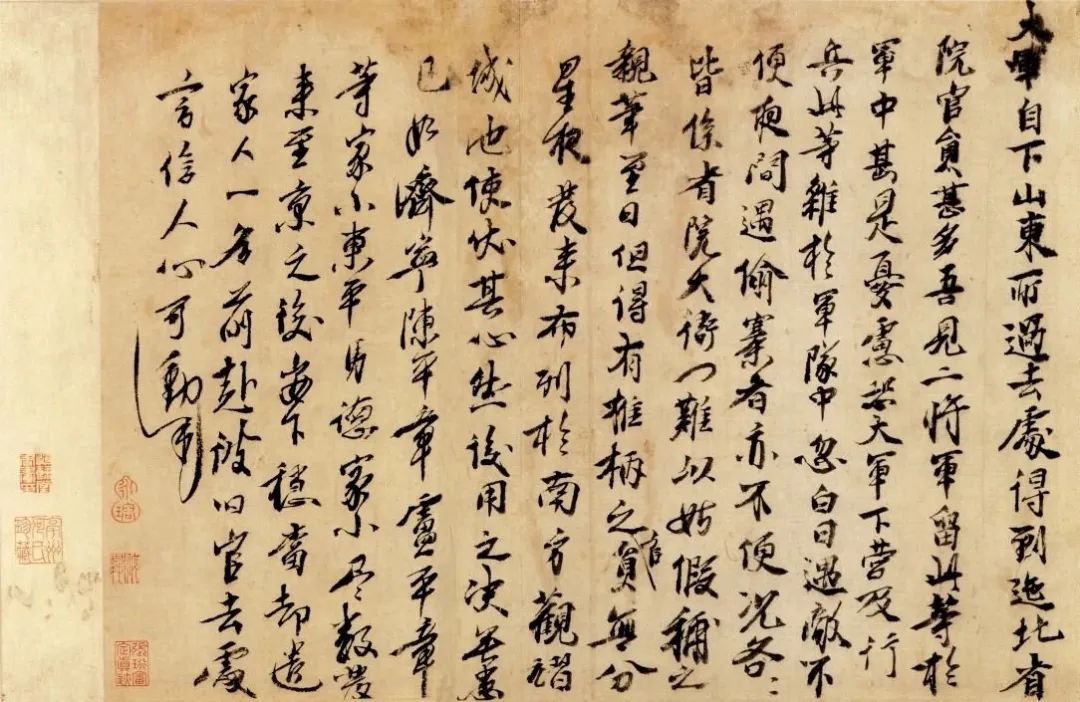 大軍自下山東所過去處得到迤北省
院官員甚多吾見二將軍留此等於
軍中甚是憂慮恐大軍下營及行
兵此等雜於軍隊中忽白日遇敵不
便夜間遇偷寨者亦不便況各〻
皆係省院大衙门難以姑假稱之
親筆至日但得有椎柄之官員無分
星夜發来布列於南方觀習
城池使伏其心然後用之決無患
已如濟寧陳平章盧平章
等家小東平馬德家小尽數發
来至京之後安下穩當却遣
家人一名前赴彼旧官去處
言信人心可動